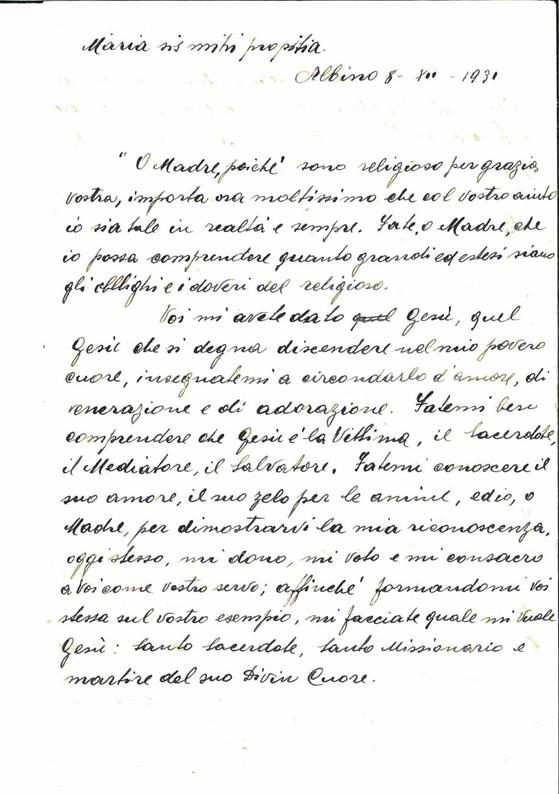 Maria sis mihi propitia.
Albino 8 - XII - 1931
" O Madre, poiché sono religioso per grazia
vostra, importa ora moltissimo che col vostro aiuto
io sia tale in realtà e sempre. Fate, o Madre, che
io possa comprendere quanto grandi ed estesi siano
gli obblighi e i doveri del religioso.
Voi mi avete dato quel Gesù, quel
Gesù che si degna discendere nel mio povero
cuore, insegnatemi a circondarlo d'amore, di
venerazione e di adorazione. Fatemi ben
comprendere che Gesù è la Vittima, il Sacerdote,
il Mediatore, il Salvatore. Fatemi conoscere il
suo amore, il suo zelo per le anime, ed io, o
Madre, per dimostrarvi la mia riconoscenza,
oggi stesso, mi dono, mi voto e mi consacro
a Voi come vostro servo; affinché formandomi Voi
stessa sul vostro esempio, mi facciate quale mi vuole
Gesù: Santo Sacerdote, Santo Missionario e
martire del suo Divin Cuore.